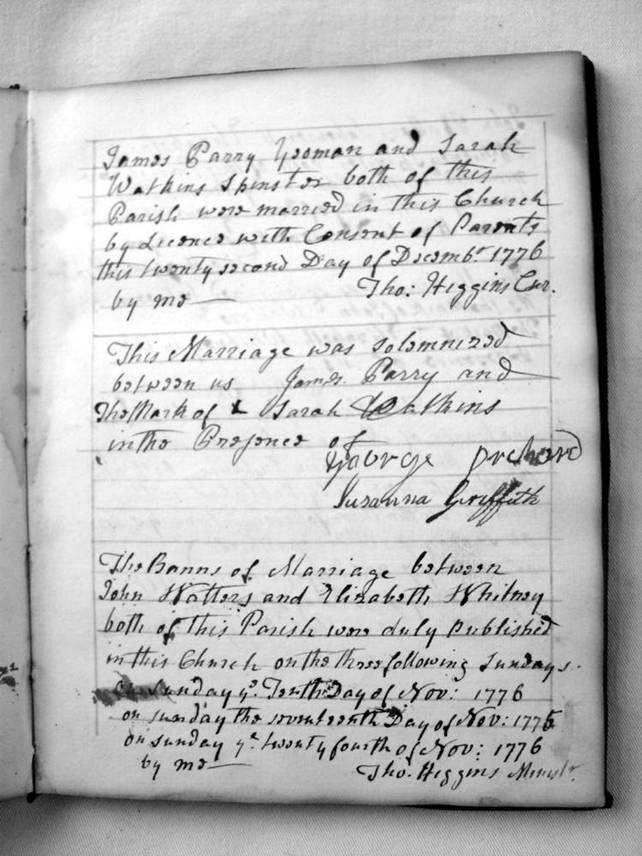 James Parry Yeoman and Sarah
Watkins Spinster both of this
Parish were married in this Church
by Licence with Consent of Parents
this twenty second Day of Decembr 1776
by me — Tho: Higgins Cur.
This Marriage was solemnized
between us James Parry and
The Mark of x Sarah Watkins
in the Presence of
George Orchard
Susanna Griffith
The Banns of Marriage between
John Watters and Elizabeth Whitney
both of this Parish were duly published
in this Church on the three following Sundays.
on Sunday ye. Tenth Day of Nov: 1776
on sunday the seventeenth Day of Nov: 1776
on sunday ye. twenty fourth of Nov: 1776
by me — Tho. Higgins Ministr.